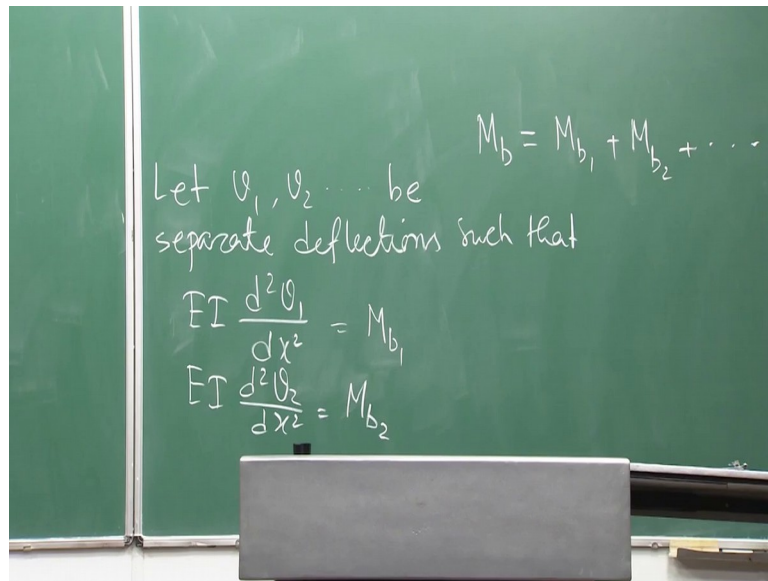 M_b = M_{b_1} + M_{b_2} + ....
Let v_1, v_2 ..... be
separate deflections such that
EI \frac{d^2 v_1}{dx^2} = M_{b_1}
EI \frac{d^2 v_2}{dx^2} = M_{b_2}